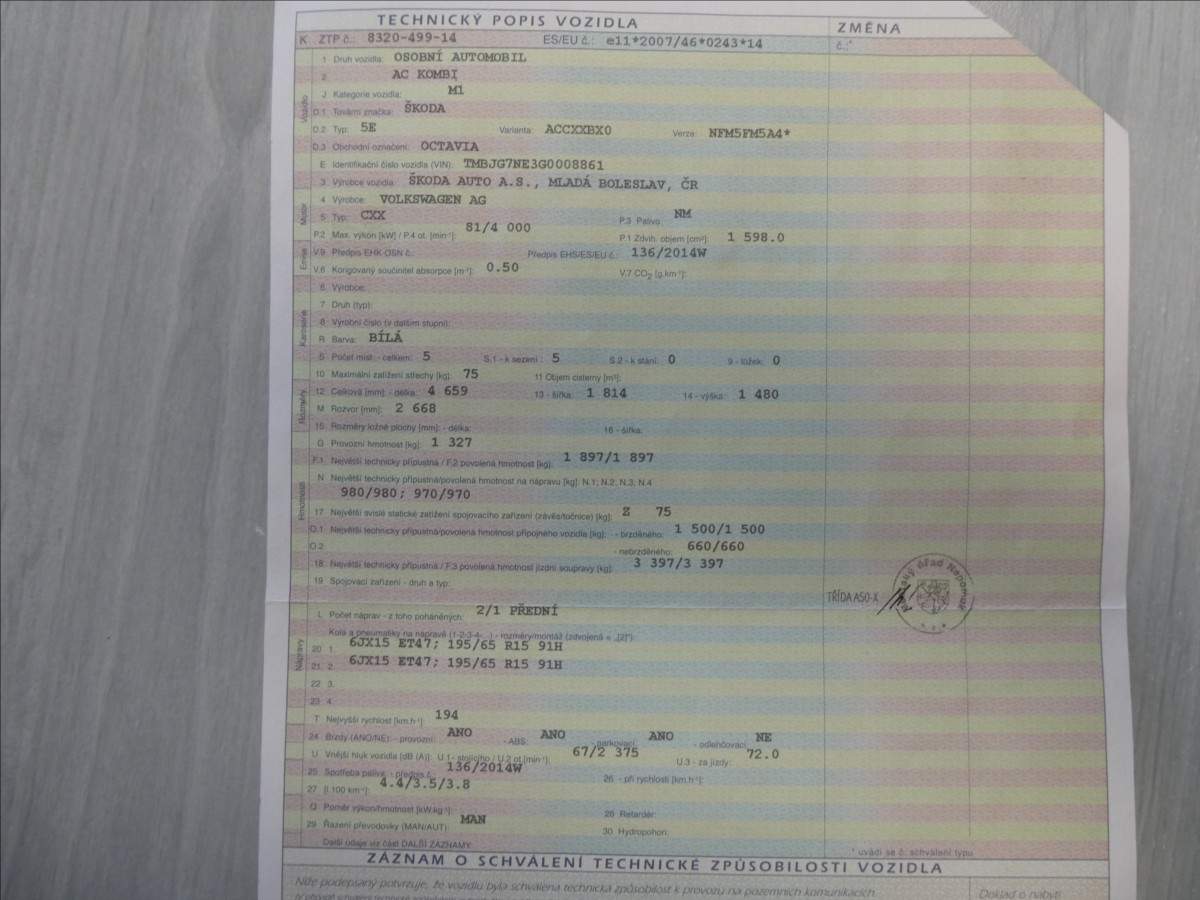 TECHNICKÝ POPIS VOZIDLA
ZMĚNA
K ZTP č.: 8320-499-14 ES/EU č.: e11*2007/46*0243*14 č.:*
1 Druh vozidla: OSOBNÍ AUTOMOBIL
2 AC KOMBI
J Kategorie vozidla: M1
D.1 Tovární značka: ŠKODA
Vozidlo
D.2 Typ: 5E Varianta: ACCXXBX0 Verze: NFM5FM5A4*
D.3 Obchodní označení: OCTAVIA
E Identifikační číslo vozidla (VIN): TMBJG7NE3G0008861
3 Výrobce vozidla: ŠKODA AUTO A.S., MLADÁ BOLESLAV, ČR
4 Výrobce: VOLKSWAGEN AG
Motor
5 Typ: CXX P.3 Palivo: NM
P.2 Max. výkon [kW] / P.4 ot. [min⁻¹]: 81/4 000 P.1 Zdvih. objem [cm³]: 1 598.0
V.9 Předpis EHK-OSN č.: Předpis EHS/ES/EU č.: 136/2014W
Emise
V.6 Korigovaný součinitel absorpce [m⁻¹]: 0.50 V.7 CO₂ [g.km⁻¹]:
6 Výrobce:
7 Druh (typ):
8 Výrobní číslo (v dalším stupni):
Karoserie
R Barva: BÍLÁ
S Počet míst - celkem: 5 S.1 - k sezení : 5 S.2 - k stání: 0 9 - lůžek: 0
10 Maximální zatížení střechy [kg]: 75 11 Objem cisterny [m³]:
12 Celková [mm]: - délka: 4 659 13 - šířka: 1 814 14 - výška: 1 480
Rozměry
M Rozvor [mm]: 2 668
15 Rozměry ložné plochy [mm]: - délka: 16 - šířka:
G Provozní hmotnost [kg]: 1 327
F.1 Největší technicky přípustná / F.2 povolená hmotnost [kg]: 1 897/1 897
N Největší technicky přípustná/povolená hmotnost na nápravu [kg]: N.1; N.2; N.3; N.4
980/980; 970/970
Hmotnosti
17 Největší svislé statické zatížení spojovacího zařízení (závěs/točnice) [kg]: Z 75
O.1 Největší technicky přípustná/povolená hmotnost přípojného vozidla [kg]: - brzděného: 1 500/1 500
O.2 - nebrzděného: 660/660
18 Největší technicky přípustná / F.3 povolená hmotnost jízdní soupravy [kg]: 3 397/3 397
19 Spojovací zařízení - druh a typ:
TŘÍDA A50-X
Městský úřad Nepomuk
L Počet náprav - z toho poháněných: 2/1 PŘEDNÍ
Kola a pneumatiky na nápravě (1-2-3-4-..) - rozměry/montáž (zdvojená = „[2]"):
20 1. 6JX15 ET47; 195/65 R15 91H
Nápravy
21 2. 6JX15 ET47; 195/65 R15 91H
22 3.
23 4.
T Nejvyšší rychlost [km.h⁻¹]: 194
24 Brzdy (ANO/NE) - provozní: ANO - ABS: ANO - parkovací: ANO - odlehčovací: NE
U Vnější hluk vozidla [dB (A)]: U.1 - stojícího / U.2 ot.[min⁻¹]: 67/2 375 U.3 - za jízdy: 72.0
25 Spotřeba paliva: - předpis č.: 136/2014W 26 - při rychlosti [km.h⁻¹]:
27 [l.100 km⁻¹]: 4.4/3.5/3.8
Q Poměr výkon/hmotnost [kW.kg⁻¹]: 28 Retardér:
29 Řazení převodovky (MAN/AUT): MAN 30 Hydropohon:
Další údaje viz část DALŠÍ ZÁZNAMY
* uvádí se č. schválení typu
ZÁZNAM O SCHVÁLENÍ TECHNICKÉ ZPŮSOBILOSTI VOZIDLA
Níže podepsaný potvrzuje, že vozidlu byla schválena technická způsobilost k provozu na pozemních komunikacích.
Doklad o nabytí